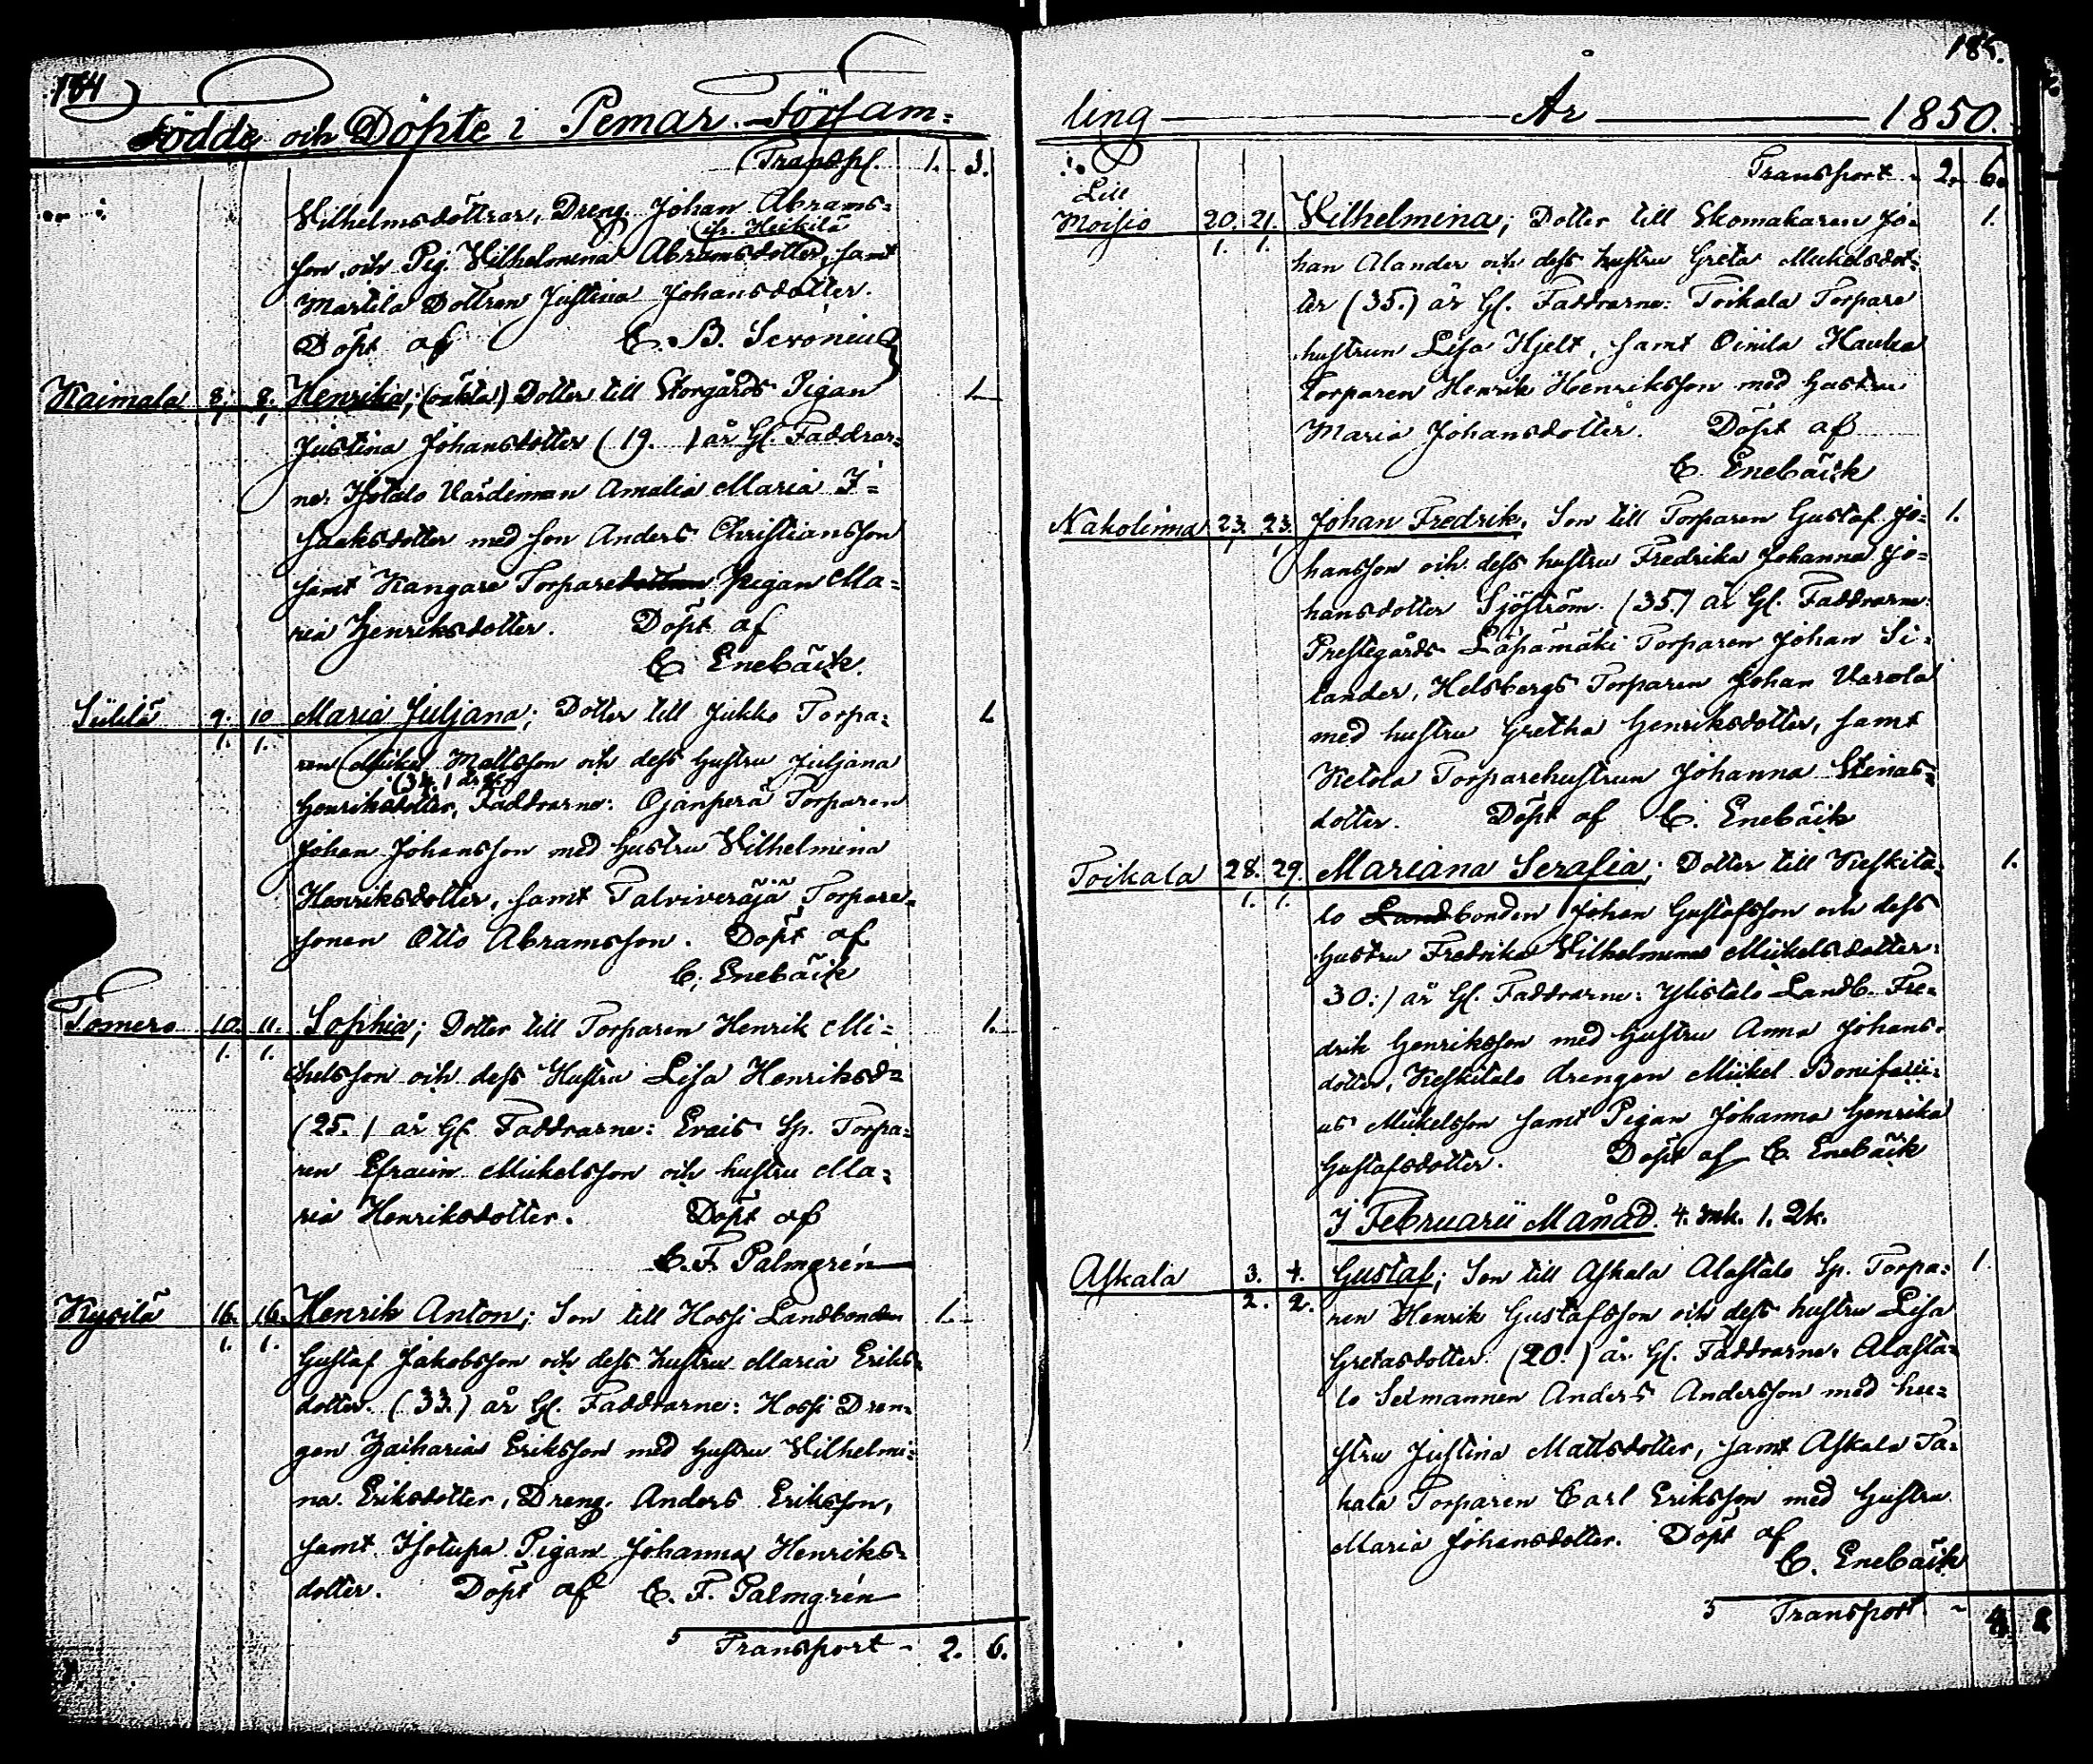 184
Födde och Döpte i Pemar Försam=
Transp. 1. 3.
Wilhelmsdöttrar, Dreng. Johan Abrams=
fr. Heikilä
son, och Pig. Wilhelmina Abramsdotter, samt
Martila Dottren Justina Johansdotter.
Döpt af C. B. Seronius
Kaimala 8. 8. Henrika; (oäkta) Dotter till Storgårds Pigan 1.
1. 1. Justina Johansdotter (19.) år Gl. Faddrar=
ne: Isotalo Värdinnan Amalia Maria I=
saaksdotter med son Anders Christiansson
samt Kangare Torparedottren Pigan Ma=
ria Henriksdotter. Döpt af
C. Enebäck.
9. 10 Maria Juljana; Dotter till Jukko Torpa= 1.
1. 1. ren Mickel Mattsson och dess hustru Juljana
(34.) år Gl.
Henriksdotter, Faddrarne: Ojanperä Torparen
Johan Johansson med hustru Wilhelmina
Henriksdotter, samt Talviveräjä Torpare=
sonen Otto Abramsson. Döpt af
C. Enebäck
Tomero 10. 11. Sophia; Dotter till Torparen Henrik Mi= 1.
1. 1. chelsson och dess Hustru Lisa Henriksd=
(25.) år Gl. Faddrarne: Evais Sp. Torpa=
ren Efraim Mickelsson och hustru Ma=
ria Henriksdotter. Döpt af
C. F. Palmgrén
Kyrilä 16. 16. Henrik Anton; Son till Hossi Landbonden 1.
1. 1. Gustaf Jakobsson och dess hustru Maria Eriks=
dotter. (33.) år Gl. Faddrarne: Hossi Dren=
gen Zacharias Eriksson med hustru Wilhelmi=
na Eriksdotter, Dreng. Anders Eriksson,
samt Isotupa Pigan Johanna Henriks=
dotter. Döpt af C. F. Palmgrén
Transport - 2. 6.
185.
ling År 1850.
Transport - 2. 6.
Lill
Moisio 20. 21. Wilhelmina; Dotter till Skomakaren Jo= 1.
1. 1. han Alander och dess hustru Greta Mickelsdot=
ter (35.) år Gl. Faddrarne: Toikala Torpare
hustrun Lisa Hjelt, samt Oinila Hauka
Torparen Henrik Henriksson med hustru
Maria Johansdotter. Döpt af
C. Enebäck
Nakolinna 23. 23. Johan Fredrik, Son till Torparen Gustaf Jo= 1.
1. 1. hansson och dess hustru Fredrika Johanna Jo=
hansdotter Sjöström. (35.) år Gl. Faddrarne:
Prestegårds Läpämäki Torparen Johan Si=
lander, Helsbergs Torparen Johan Varola
med hustru Gretha Henriksdotter, samt
Ketola Torparehustrun Johanna Stinas=
dotter. Döpt af C. Enebäck
Toikala 28. 29. Mariana Serafia; Dotter till Keskita= 1.
1. 1. lo Landbonden Johan Gustafsson och dess
hustru Fredrika Wilhelmina Mickelsdotter
30.) år Gl. Faddrarne: Ylistalo Landb. Fre=
drik Henriksson med hustru Anna Johans=
dotter, Keskitalo drengen Mickel Bonifaci=
us Mickelsson samt Pigan Johanna Henrika
Gustafsdotter. Döpt af C. Enebäck
I Februarii Månad. 4. mk. 1. Qk.
Askala 3. 4. Gustaf; Son till Askala Alastalo Sp. Torpa= 1
2. 2. ren Henrik Gustafsson och dess hustru Lisa
Gretasdotter. (20.) år Gl. Faddrarne. Alasta=
lo Selmannen Anders Andersson med hu=
stru Justina Mattsdotter, samt Askala Ta=
kala Torparen Carl Eriksson med hustru
Maria Johansdotter. Döpt af
C. Enebäck
Transport -